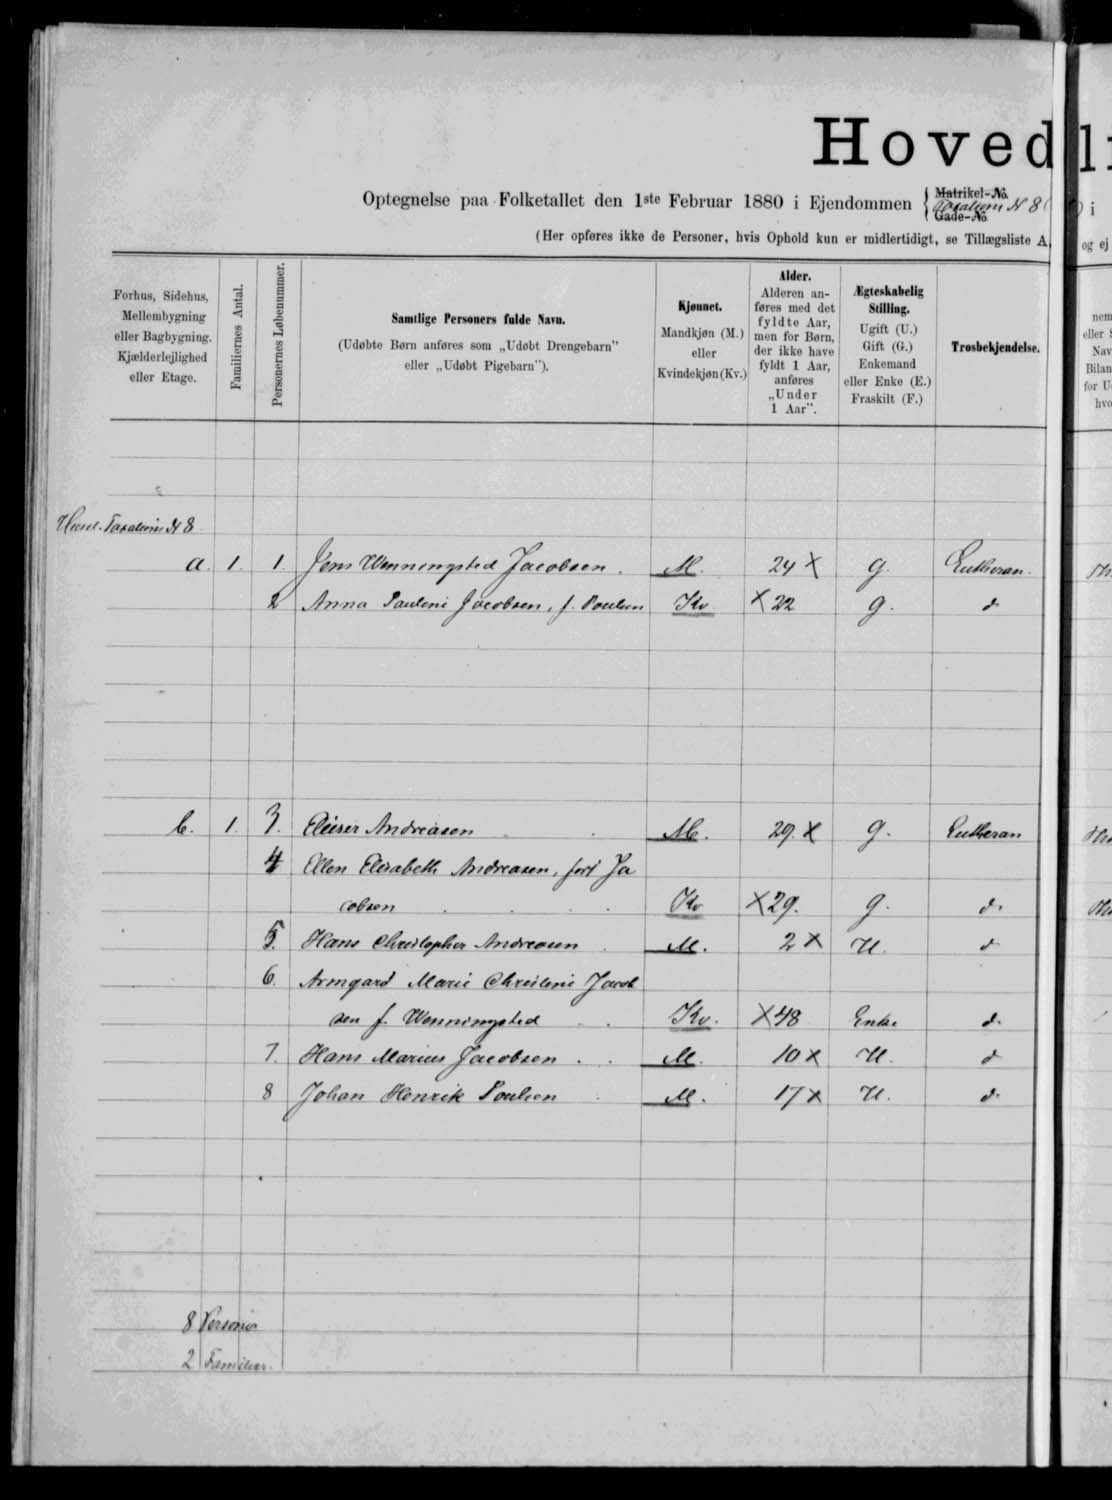 Hovedli
Optegnelse paa Folketallet den 1ste Februar 1880 i Ejendommen { Matrikel-No. Taxations № 8 Gade-No. } i
(Her opføres ikke de Personer, hvis Ophold kun er midlertidigt, se Tillægsliste A, og ej
Forhus, Sidehus,
Mellembygning
eller Bagbygning.
Kjælderlejlighed
eller Etage.
Familiernes Antal.
Personernes Løbenummer.
Samtlige Personers fulde Navn.
(Udøbte Børn anføres som „Udøbt Drengebarn"
eller „Udøbt Pigebarn").
Kjønnet.
Mandkjøn (M.)
eller
Kvindekjøn (Kv.)
Alder.
Alderen an-
føres med det
fyldte Aar,
men for Børn,
der ikke have
fyldt 1 Aar,
anføres
„Under
1 Aar".
Ægteskabelig
Stilling.
Ugift (U.)
Gift (G.)
Enkemand
eller Enke (E.)
Fraskilt (F.)
Trosbekjendelse.
nem
eller S
Nav
Bilan
for U
hvo
Taxations № 8
a. 1. 1. Jens Wenningsted Jacobsen. M. 24 x G. Lutheran.
2 Anna Pauline Jacobsen, f. Poulsen Kv. x 22 G. d.
b. 1. 3. Elieser Andreasen M. 29. x G. Lutheran
4 Ellen Elisabeth Andreasen, født Ja
cobsen Kv x 29. G. d.
5. Hans Christopher Andreasen. M. 2 x U. d.
6. Armgard Marie Christine Jacob
sen f. Wenningsted Kv. x 48 Enke d.
7. Hans Marius Jacobsen. M. 10 x U. d
8 Johan Henrik Poulsen M. 17 x U. d.
8 Personer
2 Familier.